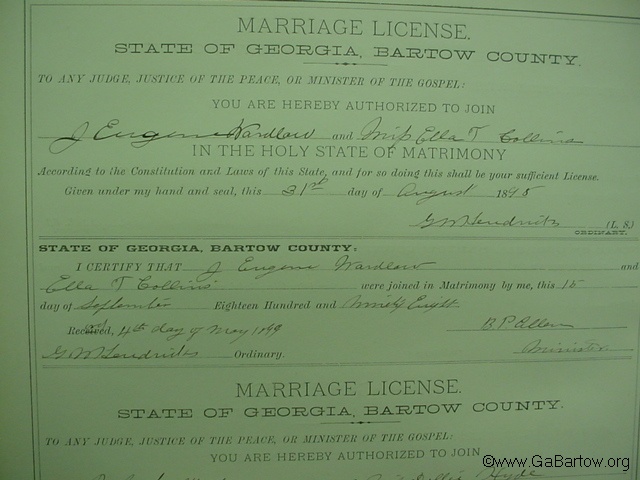 MARRIAGE LICENSE.
STATE OF GEORGIA, BARTOW COUNTY.
TO ANY JUDGE, JUSTICE OF THE PEACE, OR MINISTER OF THE GOSPEL:
YOU ARE HEREBY AUTHORIZED TO JOIN
J Eugene Wardlow and Miss Ella T Collins
IN THE HOLY STATE OF MATRIMONY
According to the Constitution and Laws of this State, and for so doing this shall be your sufficient License.
Given under my hand and seal, this 31st day of August 1898
G W Hendricks (L. S.)
ORDINARY.
STATE OF GEORGIA, BARTOW COUNTY:
I CERTIFY THAT J Eugene Wardlow and
Ella T Collins were joined in Matrimony by me, this 15
day of September Eighteen Hundred and Ninety Eight
Received, 4th day of May 1899 B. P. Allen
G W Hendricks Ordinary. Minister
MARRIAGE LICENSE.
STATE OF GEORGIA, BARTOW COUNTY.
TO ANY JUDGE, JUSTICE OF THE PEACE, OR MINISTER OF THE GOSPEL:
YOU ARE HEREBY AUTHORIZED TO JOIN
Hyde
©www.GaBartow.org